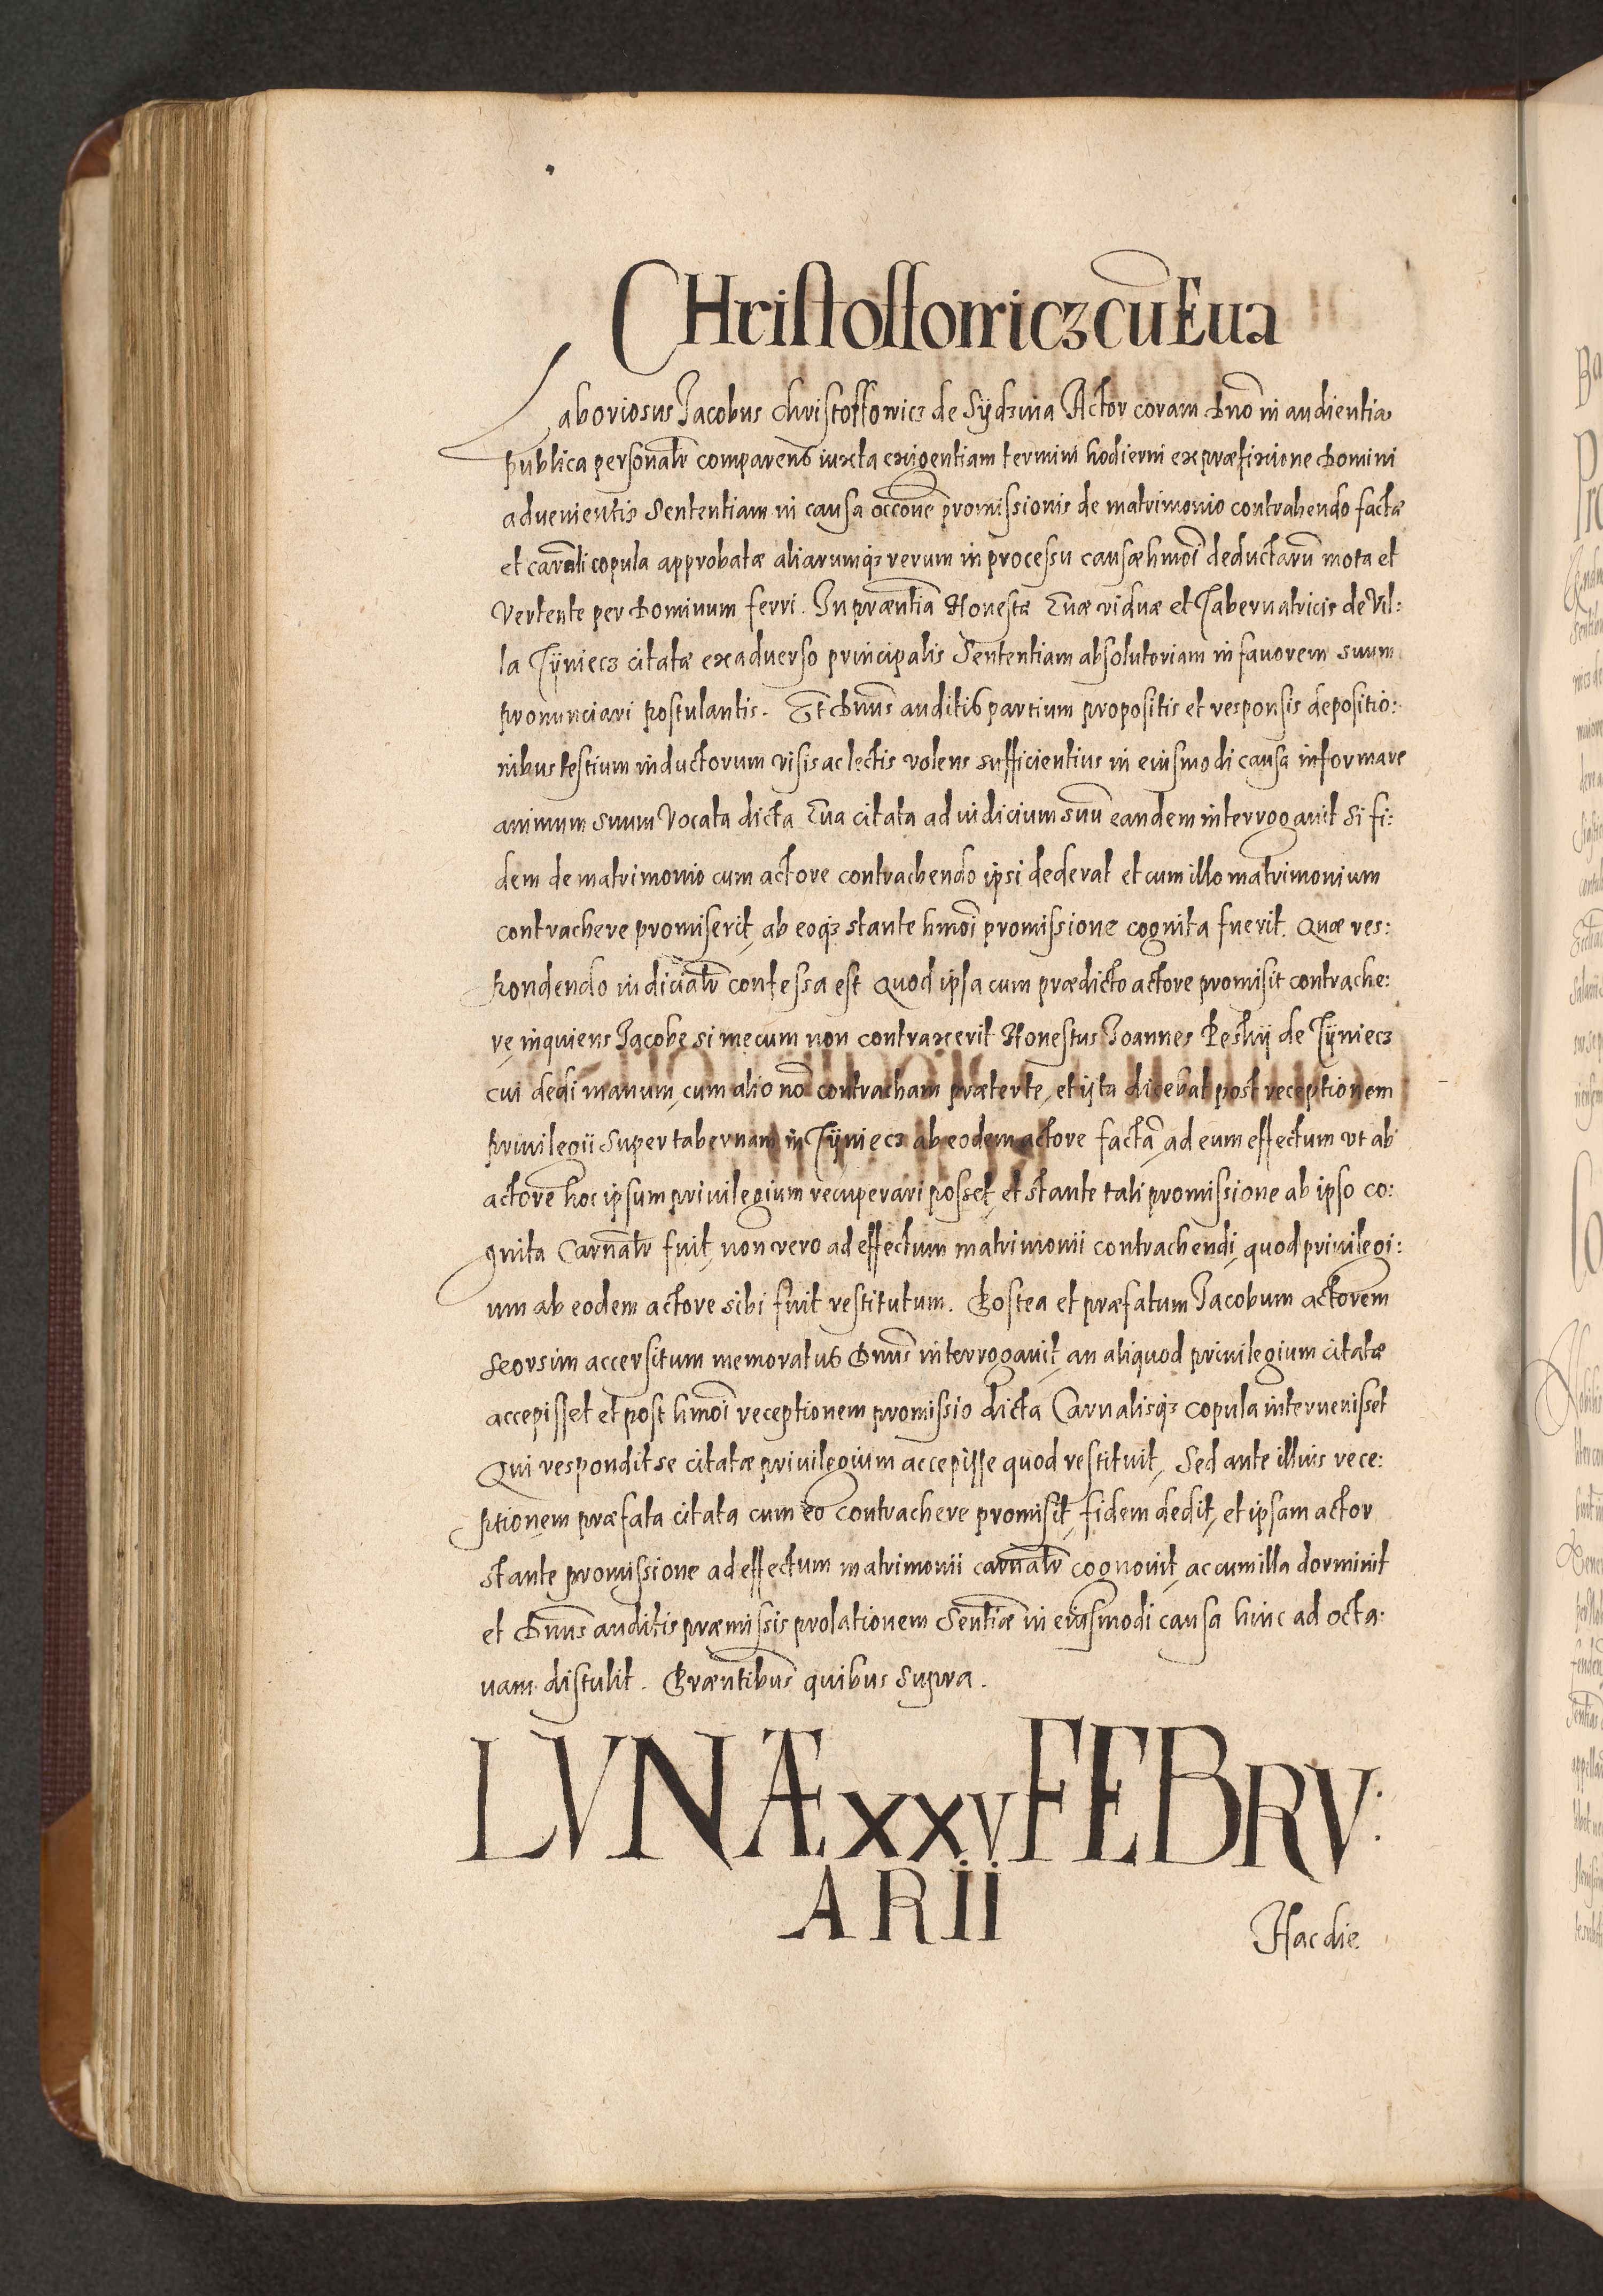 CHristoffowicz cū Eua
Laboriosus Jacobus Christoffowicz de Sÿdzina Actor coram Dno in audientia
publica personalr comparens iuxta exigentiam termini hodierni ex præfixione Domini
aduenientis Sententiam in causa occone promissionis de matrimonio contrahendo factæ
et carnali copula approbatæ aliarumqz rerum in processu causæ hmoi deductarū mota et
Vertente per Dominum ferri. In præntia Honestæ Euæ viduæ et Tabernatricis de Vil:
la Tÿniecz citatæ ex aduerso principalis Sententiam absolutoriam in fauorem suum
pronunciari postulantis. Et Dnus auditis partium propositis et responsis depositio:
nibus testium inductorum visis ac lectis volens sufficientius in eiusmodi causa informare
animum suum Vocata dicta Eua citata ad iudicium suū eandem interrogauit Si fi:
dem de matrimonio cum actore contrachendo ipsi dederat et cum illo matrimonium
contrachere promiserit, ab eoqz stante hmoi promissione cognita fuerit. Quæ res:
pondendo iudicialr confessa est Quod ipsa cum prædicto actore promisit contrache:
re, inquiens Jacobe si mecum non contraxerit Honestus Joannes Peskij de Tÿniecz
cui dedi manum, cum alio nō contracham præter te, et ijta dicebat post receptionem
priuilegii super tabernam in Tÿniecz ab eodem actore factā, ad eum effectum vt ab
actore hoc ipsum priuilegium recuperari posset, et stante tali promissione ab ipso co:
gnita Carnalr fuit, non vero ad effectum matrimonii contrachendi, quod priuilegi:
um ab eodem actore sibi fuit restitutum. Postea et præfatum Jacobum actorem
seorsim accersitum memoratus Dnus interrogauit, an aliquod priuilegium citatæ
accepisset et post hmoi receptionem promissio dicta Carnalisqz copula interuenisset
Qui respondit se citatæ priuilegium accepisse quod restituit, Sed ante illius rece:
ptionem præfata citata cum eo contrachere promisit, fidem dedit, et ipsam actor
stante promissione ad effectum matrimonii carnalr cognouit, ac cum illa dormiuit
et Dnus auditis præmissis prolationem Sentiæ in eiusmodi causa hinc ad octa:
uam distulit. Præntibus quibus supra.
LVNÆ XXV FEBRV:
ARII
Hac die